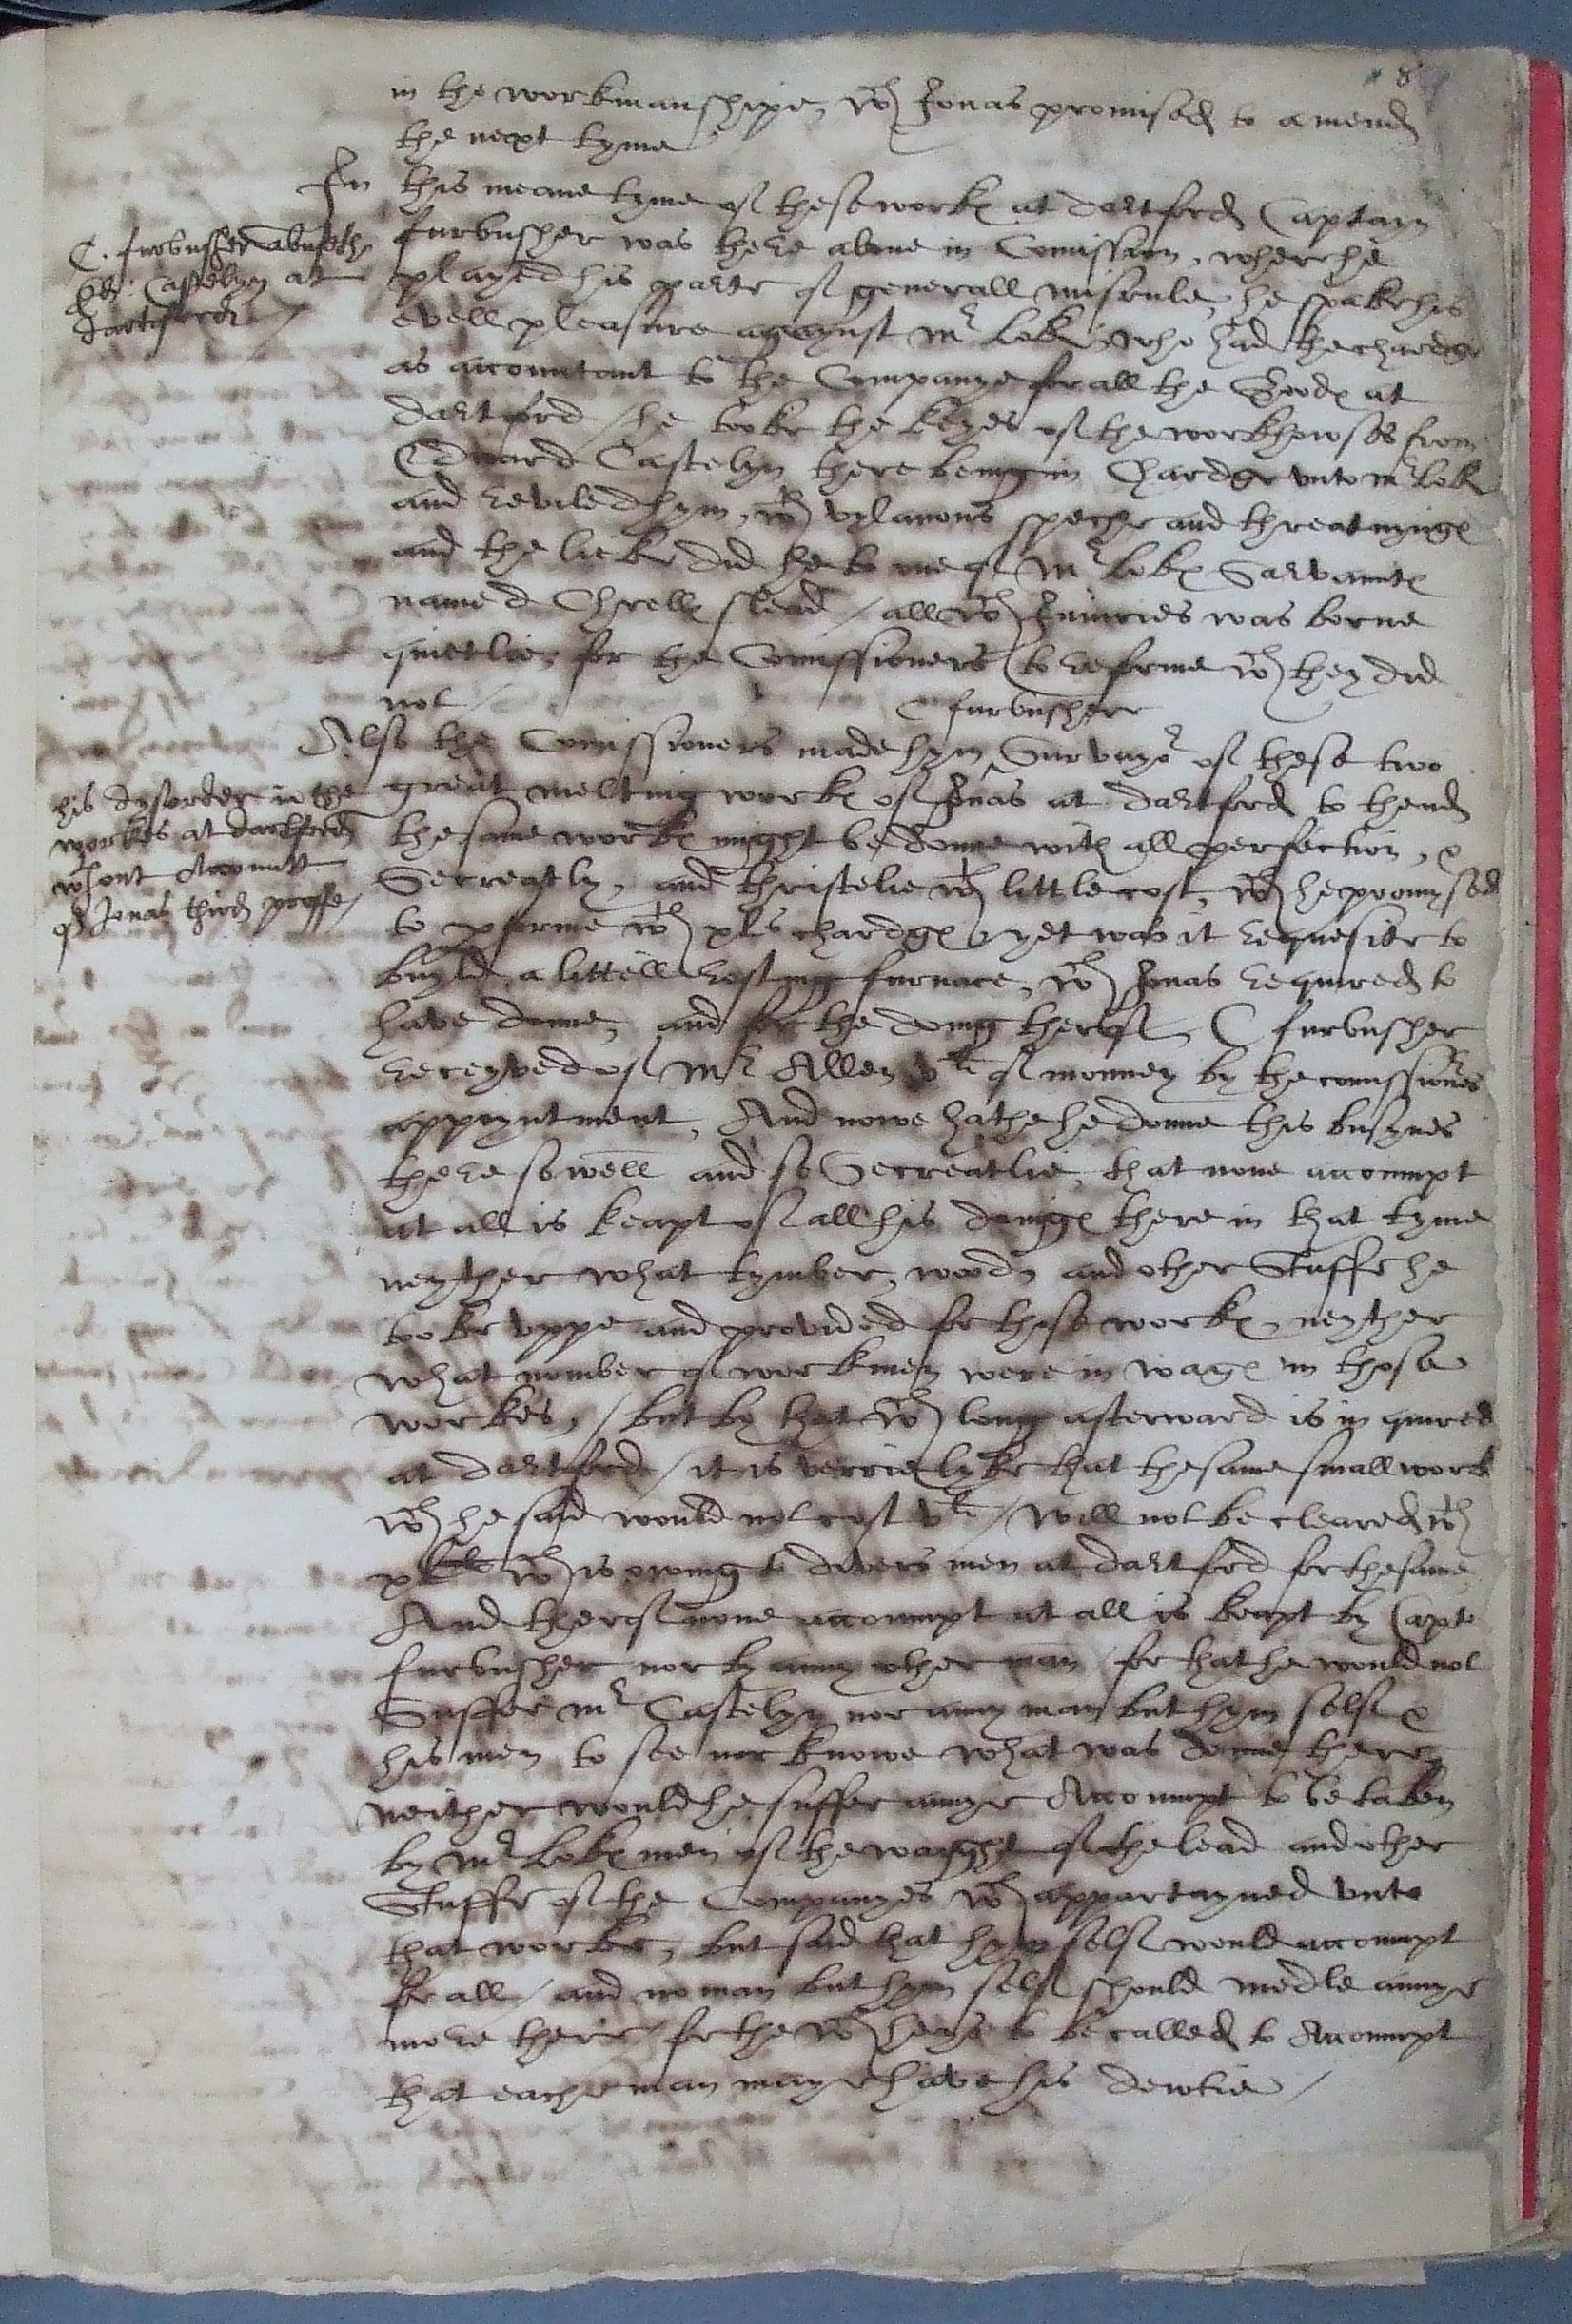 8
in the workmanshipe, wch Jonas promised to amend
the next tyme
In this meane tyme of these work at dartford Captayn
C. furbusher abuseth
Ed: Castelyn at
dartforde /
furbusher was there alone in Comission, where he
played his parte of generall misrule, he spake his
evell pleasure agaynst Mr Lok, who had the chardge
as accountant to the Companye for all the Goods at
dartford / he tooke the keyes of the workhowses from
Edward Castelyn there being in Chardge unto Mr Lok
and reviled hym, wth vylanous speche and threatnyngs
and the lieke did he to one of Mr Loks Servaunts
named Charells sled / all wch Iniuries was borne
quietlie, for the Comissioners to reforme wch they did
not /
C furbusher
Also the Comissioners made hym ^ Survayor of these two
his dysorder in the
workes at dartford
wthout Accountt
of Jonas third proffe /
great melting works of Jonas at dartford to thend
the same works might be donne with all perfection, &
Secreatly, and thriftelie wth little cost, wch he promysed
to pforme wth xls chardge, yet was it requesite to
buyld a littell rosting furnace, wch Jonas required to
have donne, and for the doing therof, C furbusher
receyved of Mr Allen vli of monney by the comissioners
appoyntment, And nowe hathe he donne this busynes
there so well and so Secreatlie, that none accompt
at all is keapt of all his doings there in that tyme
neyther what tymber, woods and other Stuffe he
tooke uppe and provided for those works, neyther
what nomber of workmen were in wages in those
workes, / but by that wch long afterward is inquired
at dartford / it is verrie lyke that the same small work
wch he said would not cost vli / will not be cleared wth
wch is owing to divers men at dartford for the same
And therof none accompt at all is keapt by Capt
furbusher nor by anny other man / for that he would not
Suffer Mr Castelyn nor anny man but hym self &
his men to see nor knowe what was donne there,
neither would he suffer annye Accompt to be taken
by Mr Loks men of the waight of the lead and other
Stuffe of the Companyes wch appartayned unto
that worke, but said that hym self would accompt
for all / and no man but hym self should medle annye
more there / for the wch he is to be called to Accompt
that eache man maye have his dewtie /